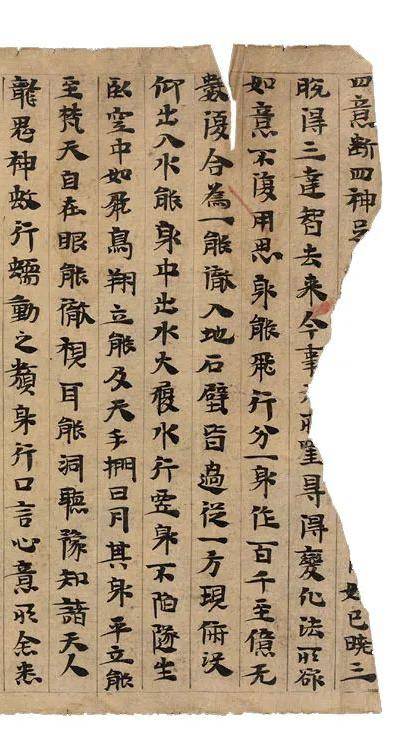 四意斷四神足如已曉三
晚得三達智去來今事无所罣㝵得變化法所欲
如意不復用思身能飛行分一身作百千至億无
數復合為一能徹入地石壁皆過從一方現俯沒
仰出入水能身中出水火履水行虛身不陷墜坐
臥空中如飛鳥翔立能及天手捫日月其身平立能
至梵天自在眼能徹視耳能洞聽豫知諸天人
龍鬼神蚑行蠕動之類身行口言心意所念悉